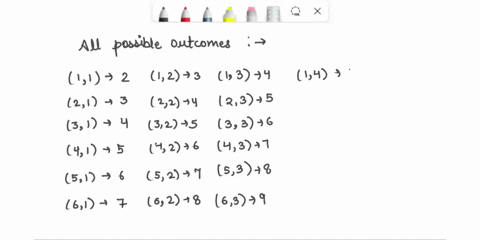 All possible outcomes :→
(1,1) → 2 (1,2) → 3 (1,3) → 4 (1,4) →
(2,1) → 3 (2,2) → 4 (2,3) → 5
(3,1) → 4 (3,2) → 5 (3,3) → 6
(4,1) → 5 (4,2) → 6 (4,3) → 7
(5,1) → 6 (5,2) → 7 (5,3) → 8
(6,1) → 7 (6,2) → 8 (6,3) → 9